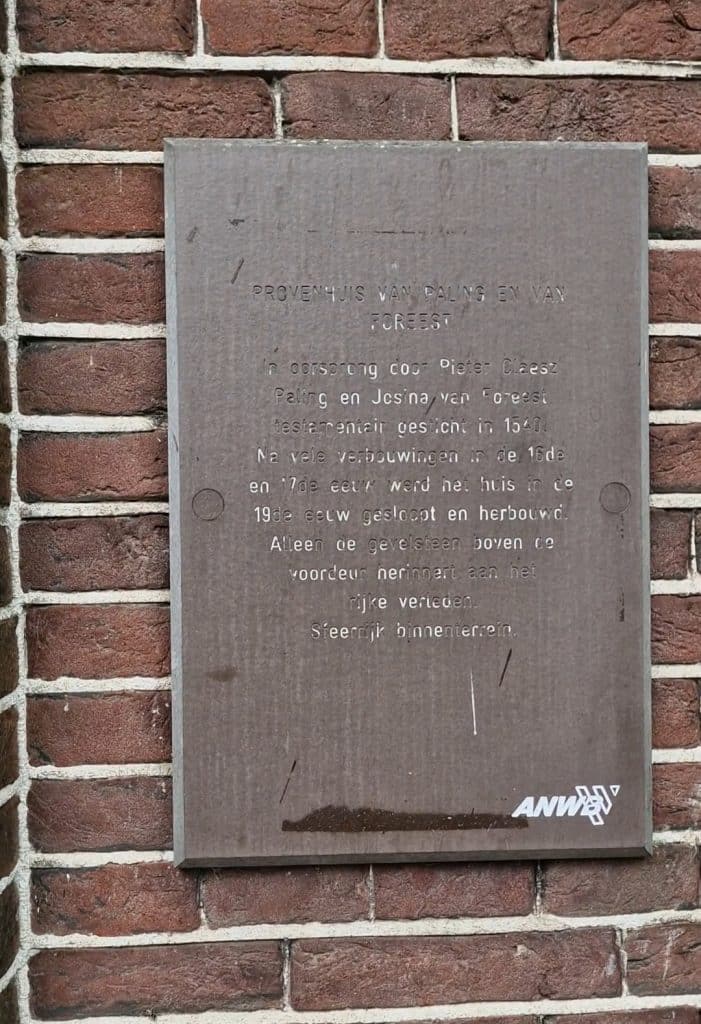 PROVENHUIS VAN PALING EN VAN
FOREEST
In oorsprong door Pieter Claesz
Paling en Josina van Foreest
testamentair gesticht in 1540.
Na vele verbouwingen in de 16de
en 17de eeuw werd het huis in de
19de eeuw gesloopt en herbouwd.
Alleen de gevelsteen boven de
voordeur herinnert aan het
rijke verleden.
Sfeerrijk binnenterrein.
ANWB